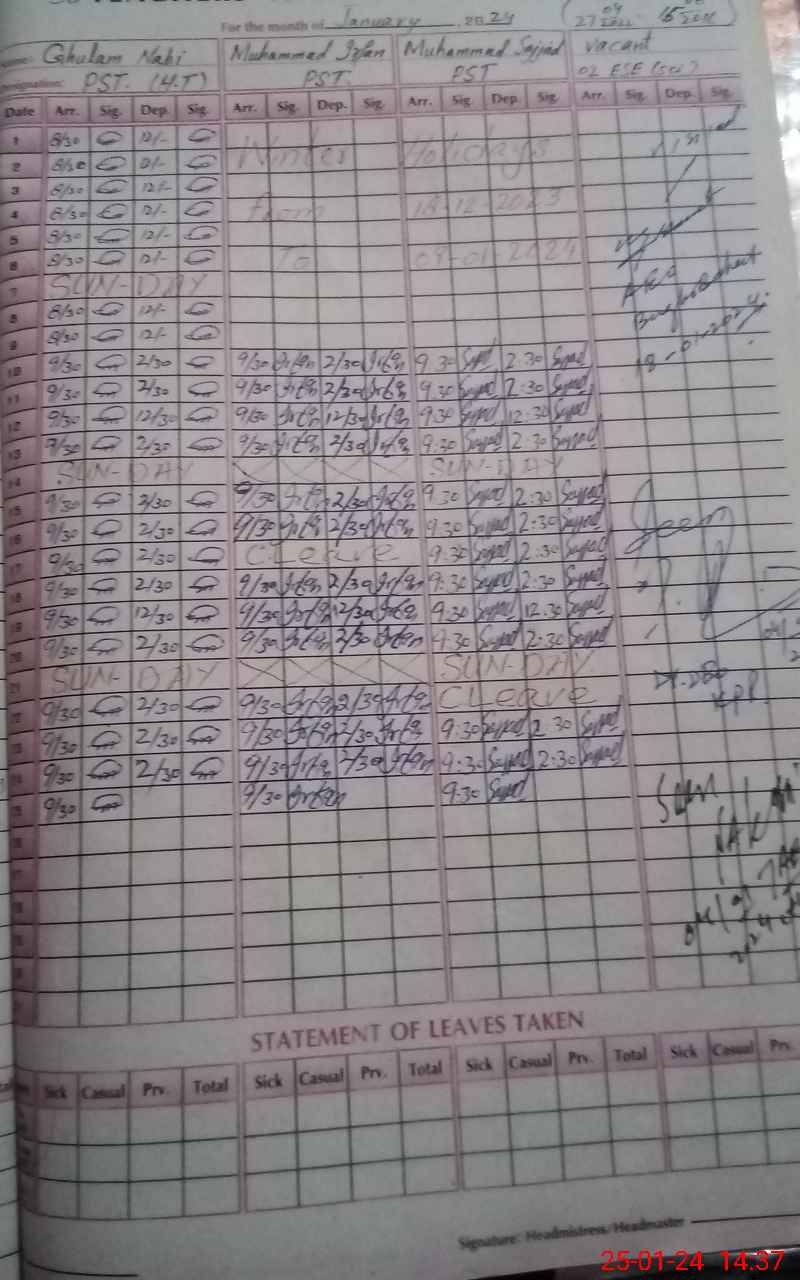 For the month of January 2024
Name: Ghulam Nabi Muhammad Irfan Muhammad Sajjad vacant
Designation: PST. (H.T) PST. PST 02 ESE (Sci)
Date Arr. Sig. Dep. Sig. Arr. Sig. Dep. Sig. Arr. Sig. Dep. Sig. Arr. Sig. Dep. Sig.
1 8/30 12/-
2 8/30 12/- Winter Holidays
3 8/30 12/-
4 8/30 12/- From 18-12-2023
5 8/30 12/-
6 8/30 12/- To 09-01-2024
7 SUN-DAY
8 8/30 12/-
9 8/30 12/-
10 9/30 2/30 9/30 Irfan 2/30 Irfan 9.30 Sajjad 2:30 Sajjad
11 9/30 2/30 9/30 Irfan 2/30 Irfan 9.30 Sajjad 2:30 Sajjad
12 9/30 12/30 9/30 Irfan 12/30 Irfan 9.30 Sajjad 12:30 Sajjad
13 9/30 2/30 9/30 Irfan 2/30 Irfan 9.30 Sajjad 2:30 Sajjad
14 SUN-DAY SUN-DAY
15 9/30 2/30 9/30 Irfan 2/30 Irfan 9.30 Sajjad 2:30 Sajjad
16 9/30 2/30 9/30 Irfan 2/30 Irfan 9.30 Sajjad 2:30 Sajjad
17 9/30 2/30 CLeave 9:30 Sajjad 2:30 Sajjad
18 9/30 2/30 9/30 Irfan 2/30 Irfan 9:30 Sajjad 2:30 Sajjad
19 9/30 12/30 9/30 Irfan 12/30 Irfan 9:30 Sajjad 12:30 Sajjad
20 9/30 2/30 9/30 Irfan 2/30 Irfan 9:30 Sajjad 2:30 Sajjad
21 SUN-DAY SUN-DAY
22 9/30 2/30 9/30 Irfan 2/30 Irfan CLeave
23 9/30 2/30 9/30 Irfan 2/30 Irfan 9:30 Sajjad 2:30 Sajjad
24 9/30 2/30 9/30 Irfan 2/30 Irfan 9:30 Sajjad 2:30 Sajjad
25 9/30 9/30 Irfan 9:30 Sajjad
AEO
18-01-2024
Seen
STATEMENT OF LEAVES TAKEN
Sick Casual Prv. Total Sick Casual Prv. Total Sick Casual Prv. Total Sick Casual Prv.
Signature: Headmistress/Headmaster
25-01-24 14:37